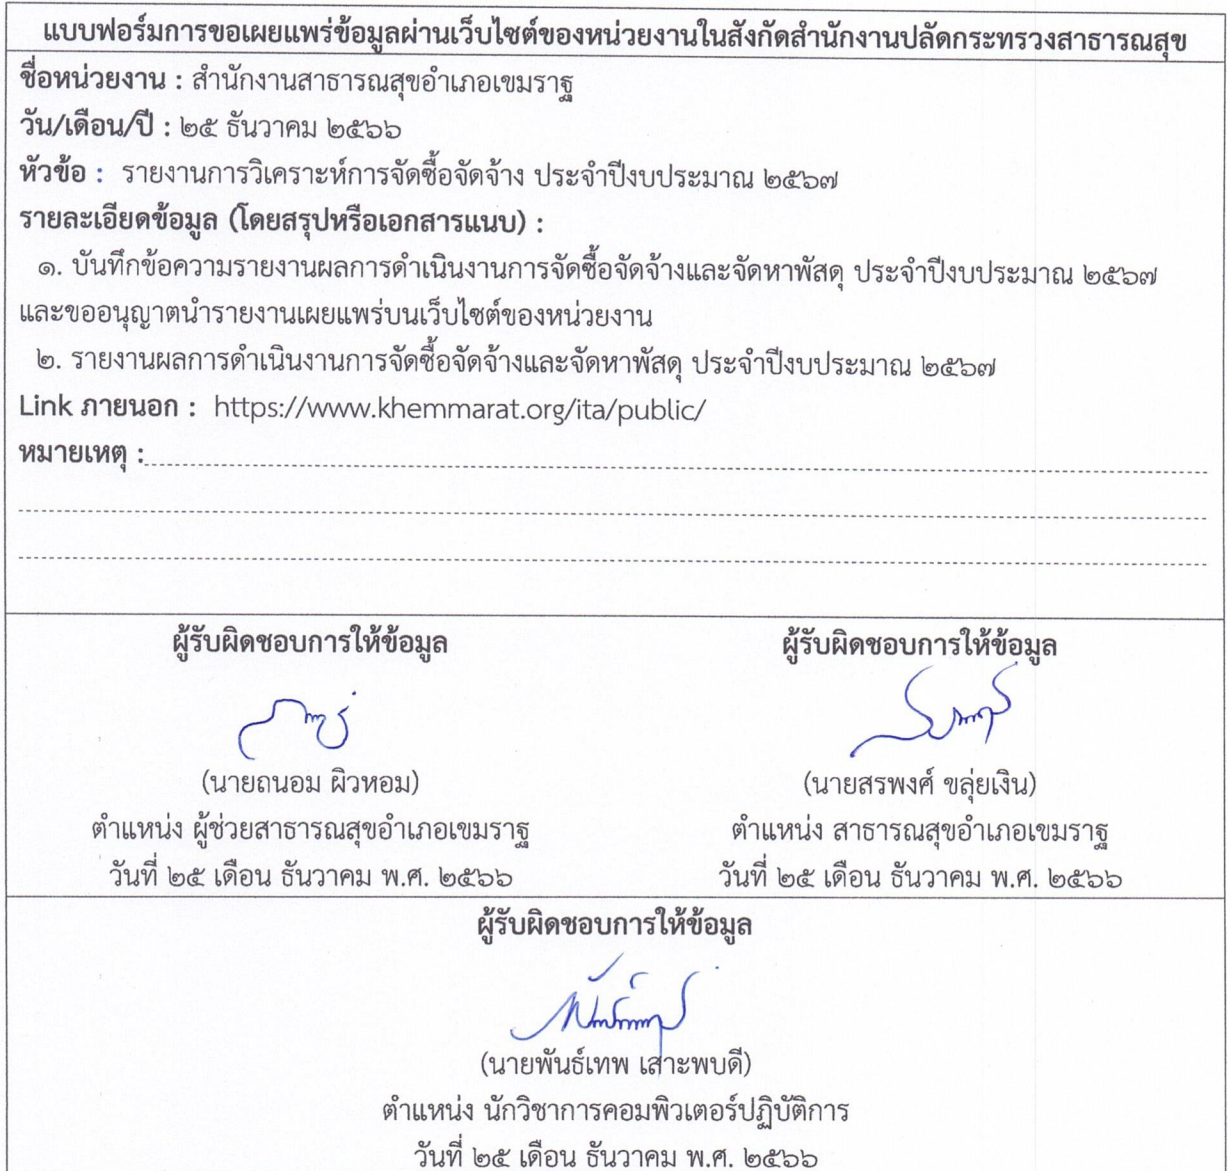 แบบฟอร์มการขอเผยแพร่ข้อมูลผ่านเว็บไซต์ของหน่วยงานในสังกัดสำนักงานปลัดกระทรวงสาธารณสุข
ชื่อหน่วยงาน : สำนักงานสาธารณสุขอำเภอเขมราฐ
วัน/เดือน/ปี : ๒๕ ธันวาคม ๒๕๖๖
หัวข้อ : รายงานการวิเคราะห์การจัดซื้อจัดจ้าง ประจำปีงบประมาณ ๒๕๖๗
รายละเอียดข้อมูล (โดยสรุปหรือเอกสารแนบ) :
๑. บันทึกข้อความรายงานผลการดำเนินงานการจัดซื้อจัดจ้างและจัดหาพัสดุ ประจำปีงบประมาณ ๒๕๖๗
และขออนุญาตนำรายงานเผยแพร่บนเว็บไซต์ของหน่วยงาน
๒. รายงานผลการดำเนินงานการจัดซื้อจัดจ้างและจัดหาพัสดุ ประจำปีงบประมาณ ๒๕๖๗
Link ภายนอก : https://www.khemmarat.org/ita/public/
หมายเหตุ :
ผู้รับผิดชอบการให้ข้อมูล
(นายถนอม ผิวหอม)
ตำแหน่ง ผู้ช่วยสาธารณสุขอำเภอเขมราฐ
วันที่ ๒๕ เดือน ธันวาคม พ.ศ. ๒๕๖๖
ผู้รับผิดชอบการให้ข้อมูล
(นายสรพงศ์ ขลุ่ยเงิน)
ตำแหน่ง สาธารณสุขอำเภอเขมราฐ
วันที่ ๒๕ เดือน ธันวาคม พ.ศ. ๒๕๖๖
ผู้รับผิดชอบการให้ข้อมูล
(นายพันธ์เทพ เสาะพบดี)
ตำแหน่ง นักวิชาการคอมพิวเตอร์ปฏิบัติการ
วันที่ ๒๕ เดือน ธันวาคม พ.ศ. ๒๕๖๖